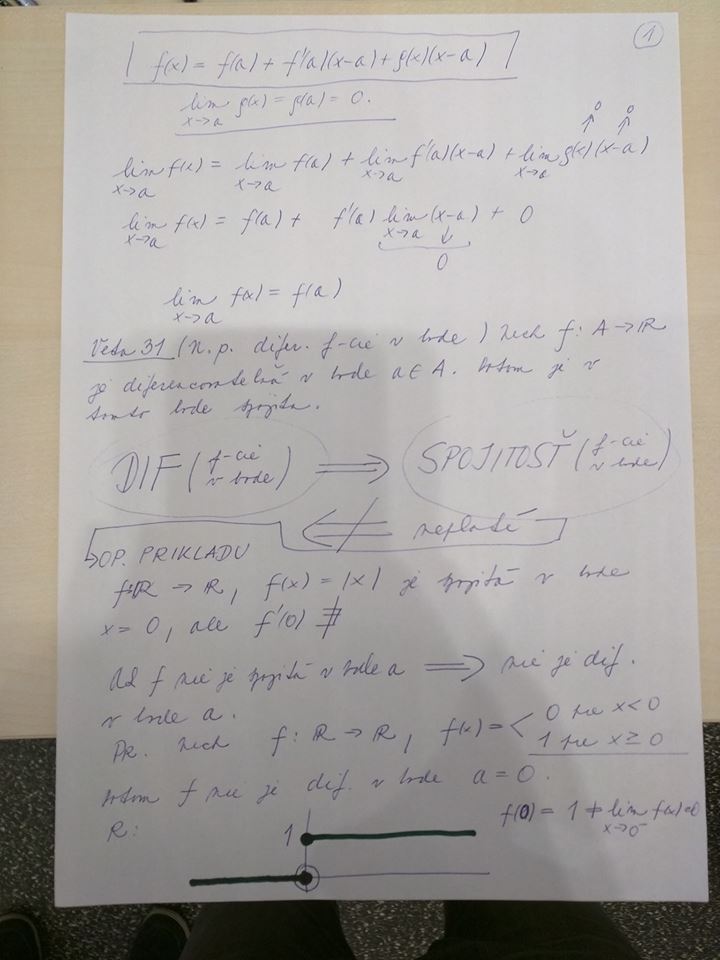 1
f(x) = f(a) + f'(a)(x-a) + ρ(x)(x-a)
lim x→a ρ(x) = ρ(a) = 0.
0 0
lim x→a f(x) = lim x→a f(a) + lim x→a f'(a)(x-a) + lim x→a ρ(x)(x-a)
lim x→a f(x) = f(a) + f'(a) lim x→a (x-a) + 0
0
lim x→a f(x) = f(a)
Veta 31 (N.p. difer. f-cie v bode) Nech f: A → R
je diferencovateľná v bode a ∈ A. Potom je v
tomto bode spojitá.
DIF (f-cie v bode) ⟹ SPOJITOSŤ (f-cie v bode)
⟸̸ neplatí
↳ OP. PRIKLADU
f: R → R, f(x) = |x| je spojitá v bode
x = 0, ale f'(0) ∄
Ak f nie je spojitá v bode a ⟹ nie je dif.
v bode a.
PR. Nech f: R → R, f(x) = < 0 pre x < 0
1 pre x ≥ 0
Potom f nie je dif. v bode a = 0.
R: 1
f(0) = 1 ≠ lim x→0⁻ f(x) = 0